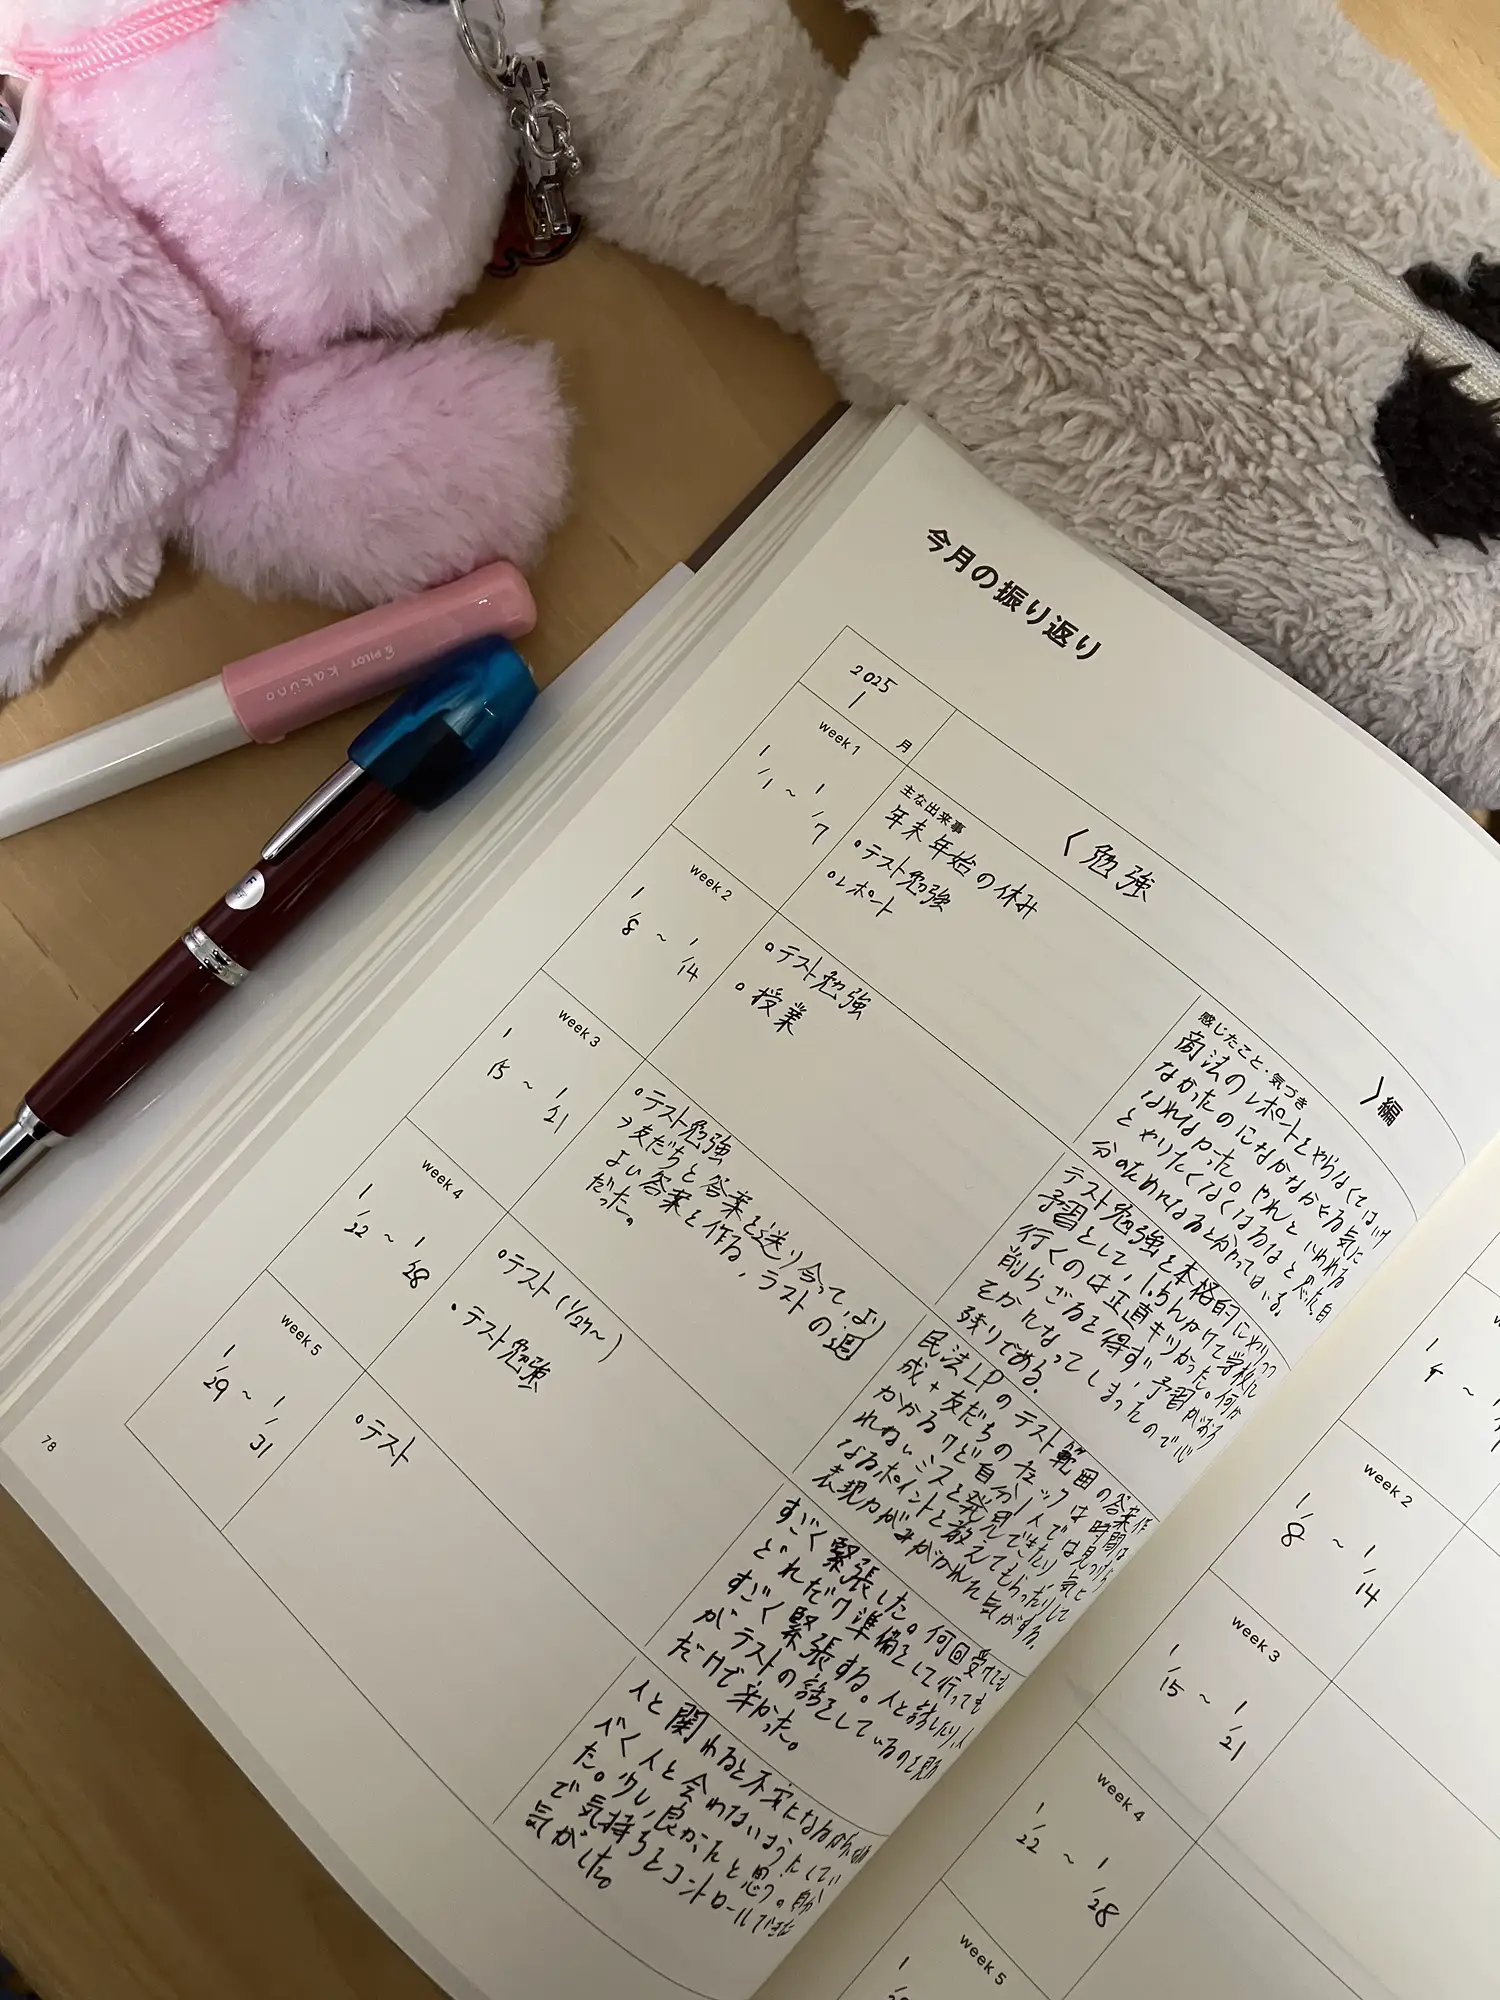 PILOT kaküno
F
今月の振り返り
2025
1
月
〈勉強
〉編
week 1
1/1 ~ 1/7
主な出来事
年末年始の休み
○テスト勉強
○レポート
感じたこと・気づき
商法のレポートをやらなくてはいけ
なかったのになかなかやる気に
なれなかった。やれといわれる
とやりたくなくなるなと思った。自
分のためになると分かってはいる。
week 2
1/8 ~ 1/14
○テスト勉強
○授業
テスト勉強を本格的にやりつつ
予習をして、1.5hかけて学校に
行くのは正直キツかった。何か
削らざるを得ず、予習がおろ
そかになってしまったので心
残りである。
week 3
1/15 ~ 1/21
○テスト勉強
→友だちと答案を送り合って、より
よい答案を作る、ラストの週
だった。
民法LPのテスト範囲の答案作
成+友だちのチェックは時間は
かかるけど自分1人では見つけら
れないミスを発見できたり、気に
なるポイントを教えてもらったりして
表現力がみがかれた気がする。
week 4
1/22 ~ 1/28
○テスト(1/27~)
・テスト勉強
すごく緊張した。何回受けても
どれだけ準備をして行っても
すごく緊張する。人と話したり、人
がテストの話をしているのを聞く
だけで辛かった。
week 5
1/29 ~ 1/31
○テスト
人と関わると不安になるから、
べく人と会わないようにしてい
た。少し良かったと思う。自分
で気持ちをコントロールできた
気がした。
78
1
week 2
1/8 ~ 1/14
week 3
1/15 ~ 1/21
week 4
1/22 ~ 1/28
week 5
1